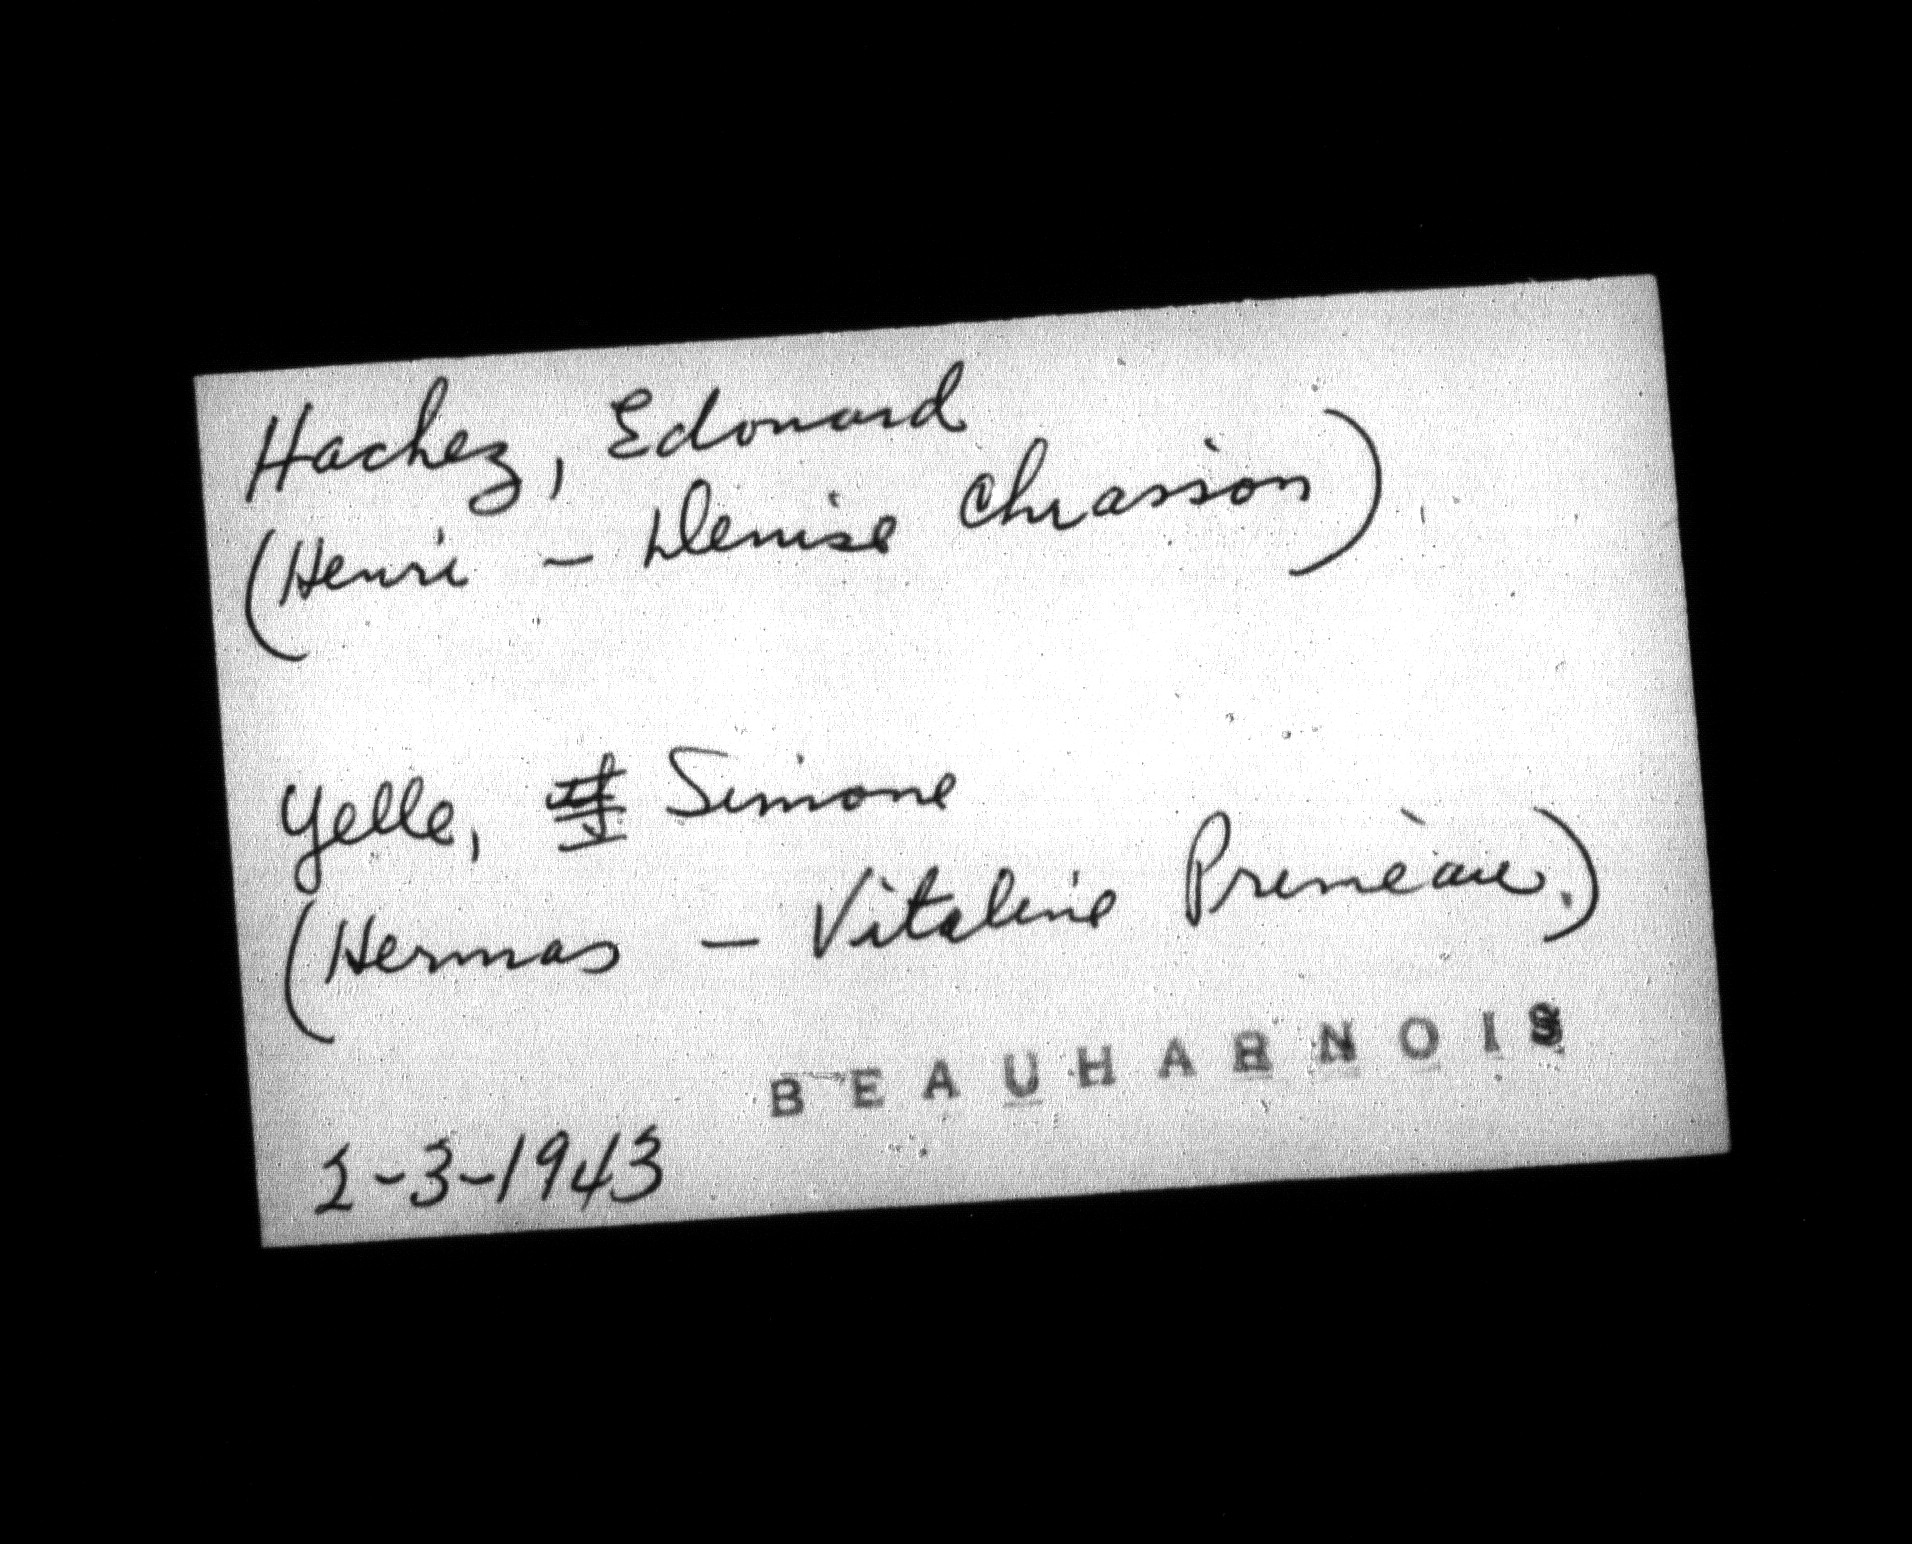 Hachez, Edouard
(Henri - Denise Chiasson)
Yelle, Simone
(Hermas - Vitaline Primeau.)
BEAUHARNOIS
2-3-1943